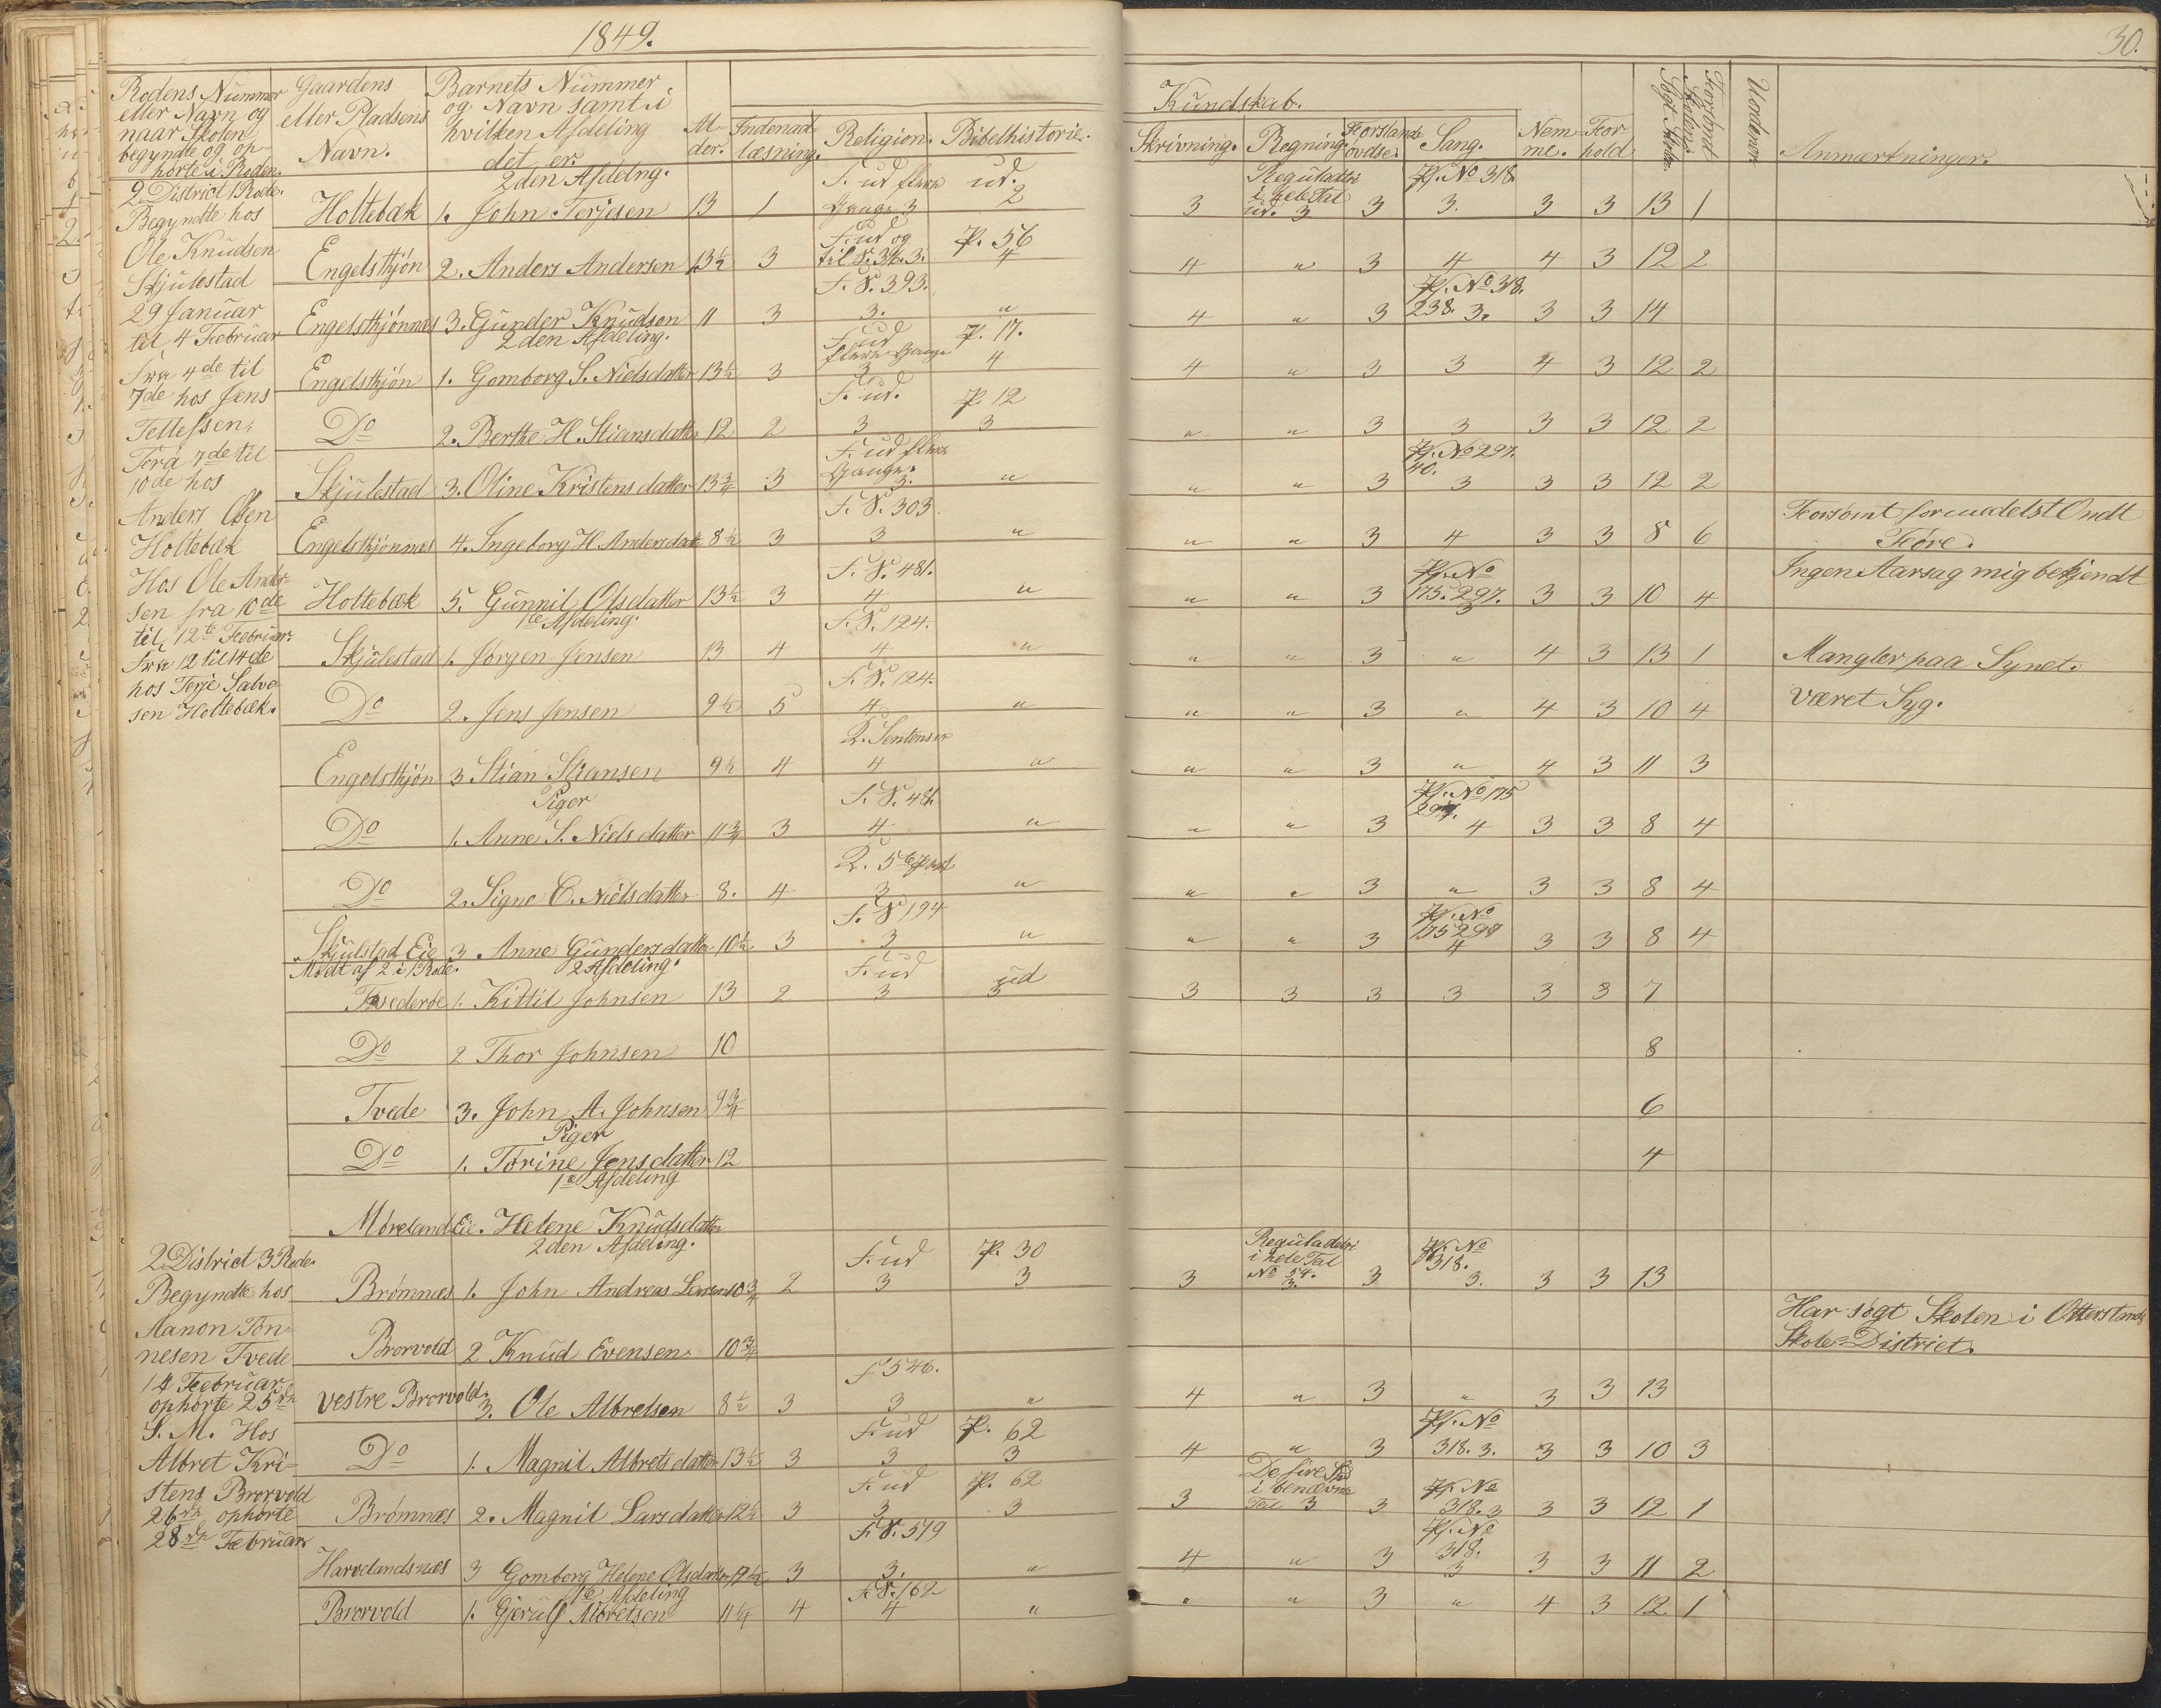 1849.
30.
Rodens Nummer eller Navn og naar Skolen begyndte og ophørte i Roden.
Gaardens eller Pladsens Navn.
Barnets Nummer og Navn samt i hvilken Afdeling det er
Alder.
Indenadlæsning.
Religion.
Bibelhistorie.
Kundskab.
Skrivning.
Regning.
Forstandsøvdse.
Sang.
Nemme.
Forhold
Søgt Skolen
Forsømt Skolen
Uordener
Anmærkninger.
2 District 1 Rode.
Begyndte hos
Ole Knudsen
Skjulestad
29 Januar
til 4 Februar
Fra 4de til
7de hos Jens
Tellefsen,
Fora 7de til
10de hos
Anders Olsen
Holtebæk
Hos Ole Andersen fra 10de
til 12te Februar.
Fra 12 til 14de
hos Terje Salvesen Holtebæk.
2den Afdelng.
Holtebæk 1. John Terjesen 13 1 F. ud flere Gange 3 ud. 2 3 Reguladetri i hele Tal ud. 3 3 Ps. No 318. 3. 3 3 13 1
Engelsthjøn 2. Anders Andersen 13½ 3 F. ud og til P. 36. 3. P. 56 4 4 " 3 4 4 3 12 2
Engelsthjønnes 3. Gunder Knudsen 11 3 F. P. 393. 3. " 4 " 3 Ps. No 318. 238. 3. 3 3 14
2den Afdeling.
Engelsthjøn 1. Gomborg S. Nielsdatter 13½ 3 F. ud flere Gange 3 P. 17. 4 4 " 3 3 4 3 12 2
Do 2. Berthe H. Stiansdatter 12 2 F. ud. 3 P 12 3 " " 3 3 3 3 12 2
Skjulestad 3. Oline Kristensdatter 13¾ 3 F. ud flere Gange. 3. " " " 3 Ps. No 297. 40. 3 3 3 12 2
Engelsthjønnes 4. Ingeborg H. Andersdatt 8½ 3 F. P. 303. 3 " " " 3 4 3 3 8 6 Forsømt formedelst Ondt Føre.
Holtebæk 5. Gunnil Olsdatter 13½ 3 F. P. 481. 4 " " " 3 Ps. No 175. 297. 3 3 3 10 4 Ingen Aarsag mig bekjendt
1te Afdeling.
Skjulestad 1. Jørgen Jensen 13 4 F. P. 124. 4 " " " 3 " 4 3 13 1 Mangler paa Synet.
Do 2. Jens Jensen 9½ 5 F. P. 124. 4 " " " 3 " 4 3 10 4 Været Syg.
Engelsthjøn 3 Stian Stiansen 9½ 4 L. Sentenser 4 " " " 3 " 4 3 11 3
Piger
Do 1. Anne S. Nielsdatter 11¾ 3 F. P. 481. 4 " " " 3 Ps. No 175 297. 4 3 3 8 4
Do 2. Signe C. Nielsdatter 8. 4 L. 5te Part 3 " " " 3 " 3 3 8 4
Skjulstad Eie 3. Anne Gundersdatter 10½ 3 F. P 194 3 " " " 3 Ps. No 175 297 4 3 3 8 4
Mødt af 2 i Rode. 2 Afdeling.
Tvederøe 1. Kittil Johnsen 13 2 F. ud 3 ud 3 3 3 3 3 3 3 7
Do 2 Thor Johnsen 10 8
Tvede 3. John A. Johnsen 9¾ 6
Piger
Do 1. Torine Jensdatter 12 4
1te Afdeling
Møreland Eie. Helene Knudsdatter
2 District 3 Rode.
Begyndte hos
Aanon Tønnesen Tvede
14 Februar
ophørte 25de
S. M. Hos
Albret Kristens Brorvold
26de ophørte
28de Februar
2den Afdeling.
Brømnæs 1. John Andreas Larsen 10¾ 2 F. ud 3 P. 30 3 3 Reguladetri i hele Tal No 54. 3. 3 Ps. No 318. 3. 3 3 13
Brorvold 2 Knud Evensen 10¾ Har søgt Skolen i Otterslands Skole-District.
Vestre Brorvold 3. Ole Albretsen 8½ 3 F 546. 3 " 4 " 3 " 3 3 13
Do 1. Magnil Albretsdatter 13½ 3 F. ud 3 P. 62 3 4 " 3 Ps. No 318. 3. 3 3 10 3
Brømnæs 2. Magnil Larsdatter 12½ 3 F. ud 3 P. 62 3 3 De fire Sp. i benævnte Tal 3 3 Ps. No 318. 3 3 3 12 1
Harvelandsnæs 3 Gomborg Helene Olsdatter 12½ 3 F. P. 579 3. " 4 " 3 Ps. No 318. 3 3 3 11 2
1te Afdeling
Brorvold 1. Gjerulf Albretsen 11¼ 4 F. P. 162 4 " " " 3 " 4 3 12 1